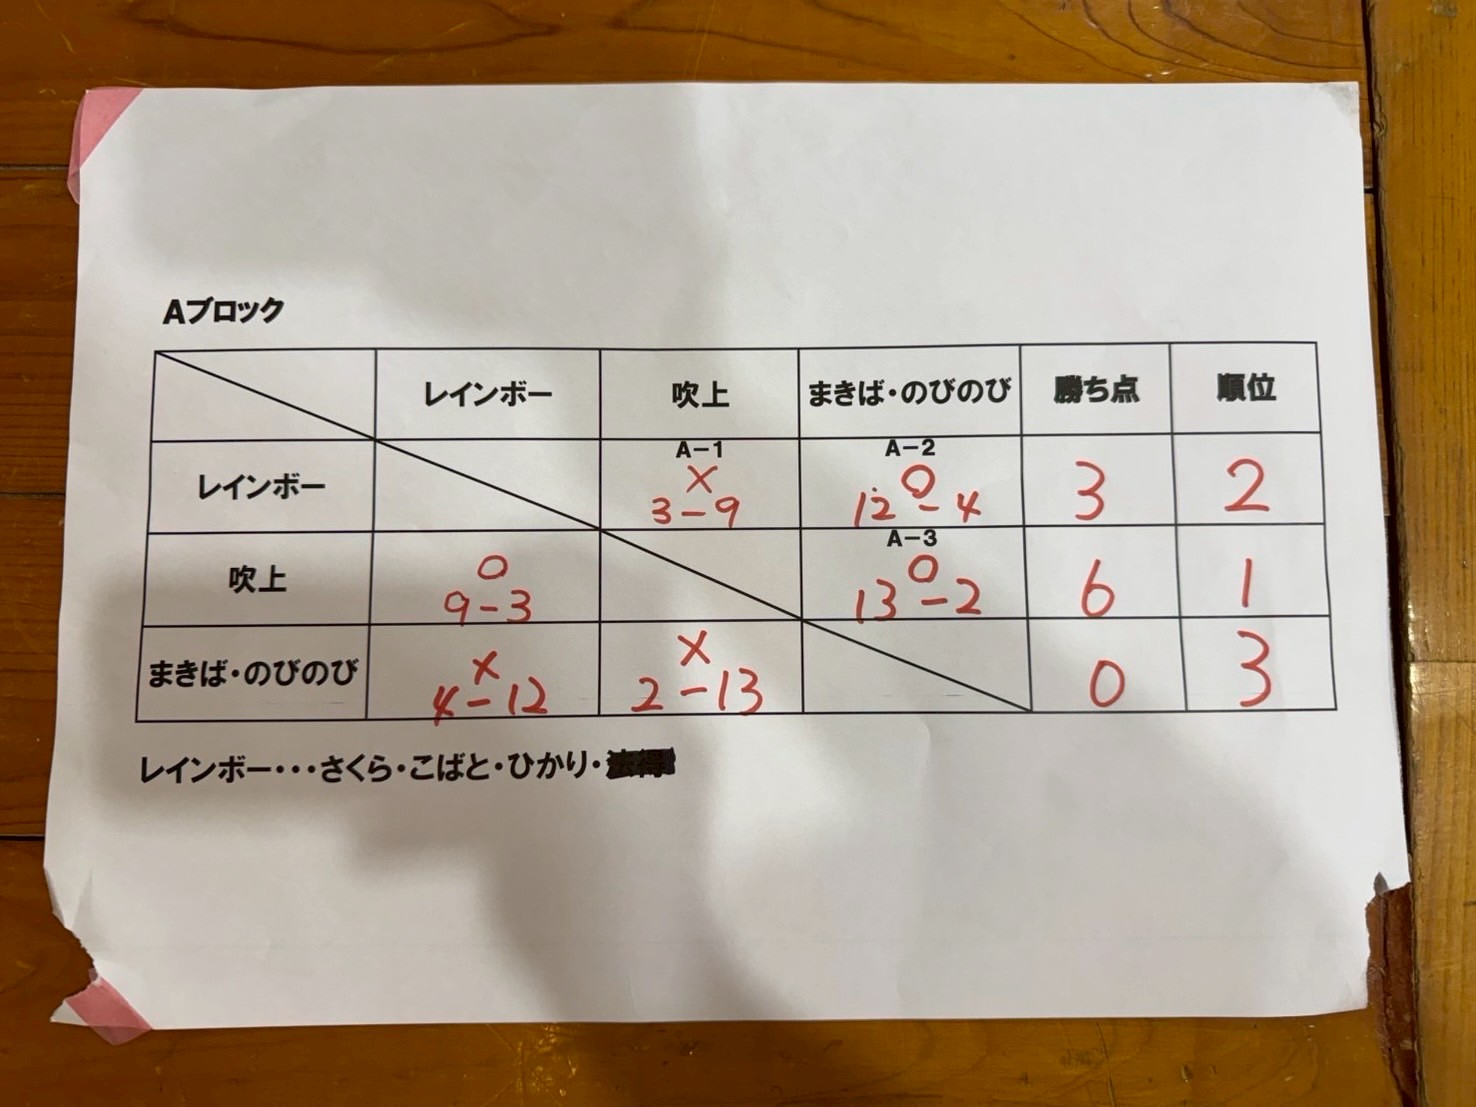 Aブロック
レインボー 吹上 まきば・のびのび 勝ち点 順位
A-1 A-2
レインボー × 3-9 ○ 12-4 3 2
A-3
吹上 ○ 9-3 ○ 13-2 6 1
まきば・のびのび × 4-12 × 2-13 0 3
レインボー・・・さくら・こばと・ひかり・